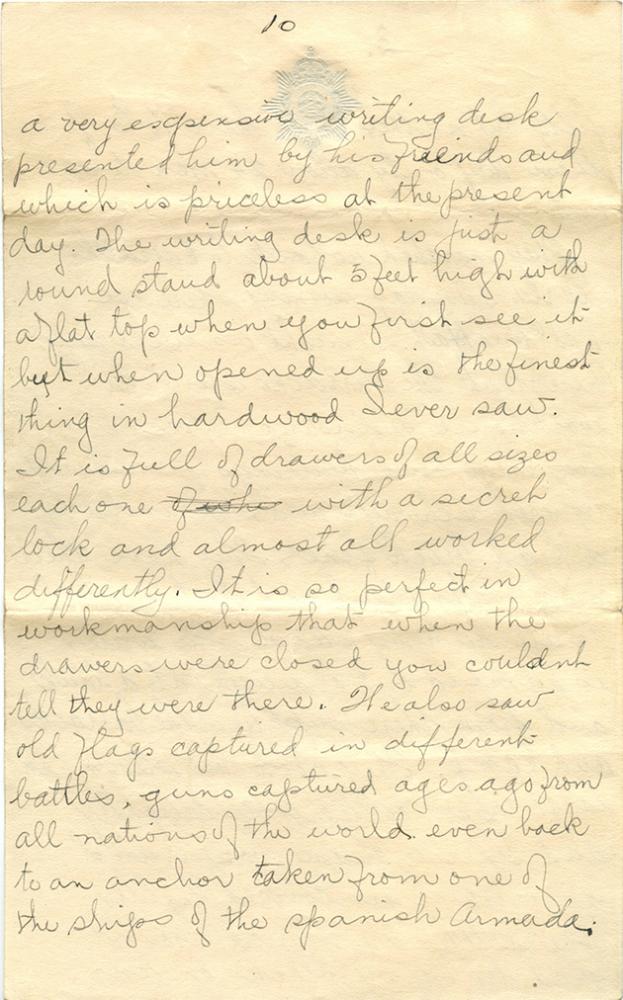 10
a very expensive writing desk
presented him by his friends and
which is priceless at the present
day. The writing desk is just a
round stand about 5 feet high with
a flat top when you first see it
but when opened up is the finest
thing in hardwood I ever saw.
It is full of drawers of all sizes
each one of whi with a secret
lock and almost all worked
differently. It is so perfect in
workmanship that when the
drawers were closed you couldnt
tell they were there. We also saw
old flags captured in different
battles, guns captured ages ago from
all nations of the world even back
to an anchor taken from one of
the ships of the spanish Armada.